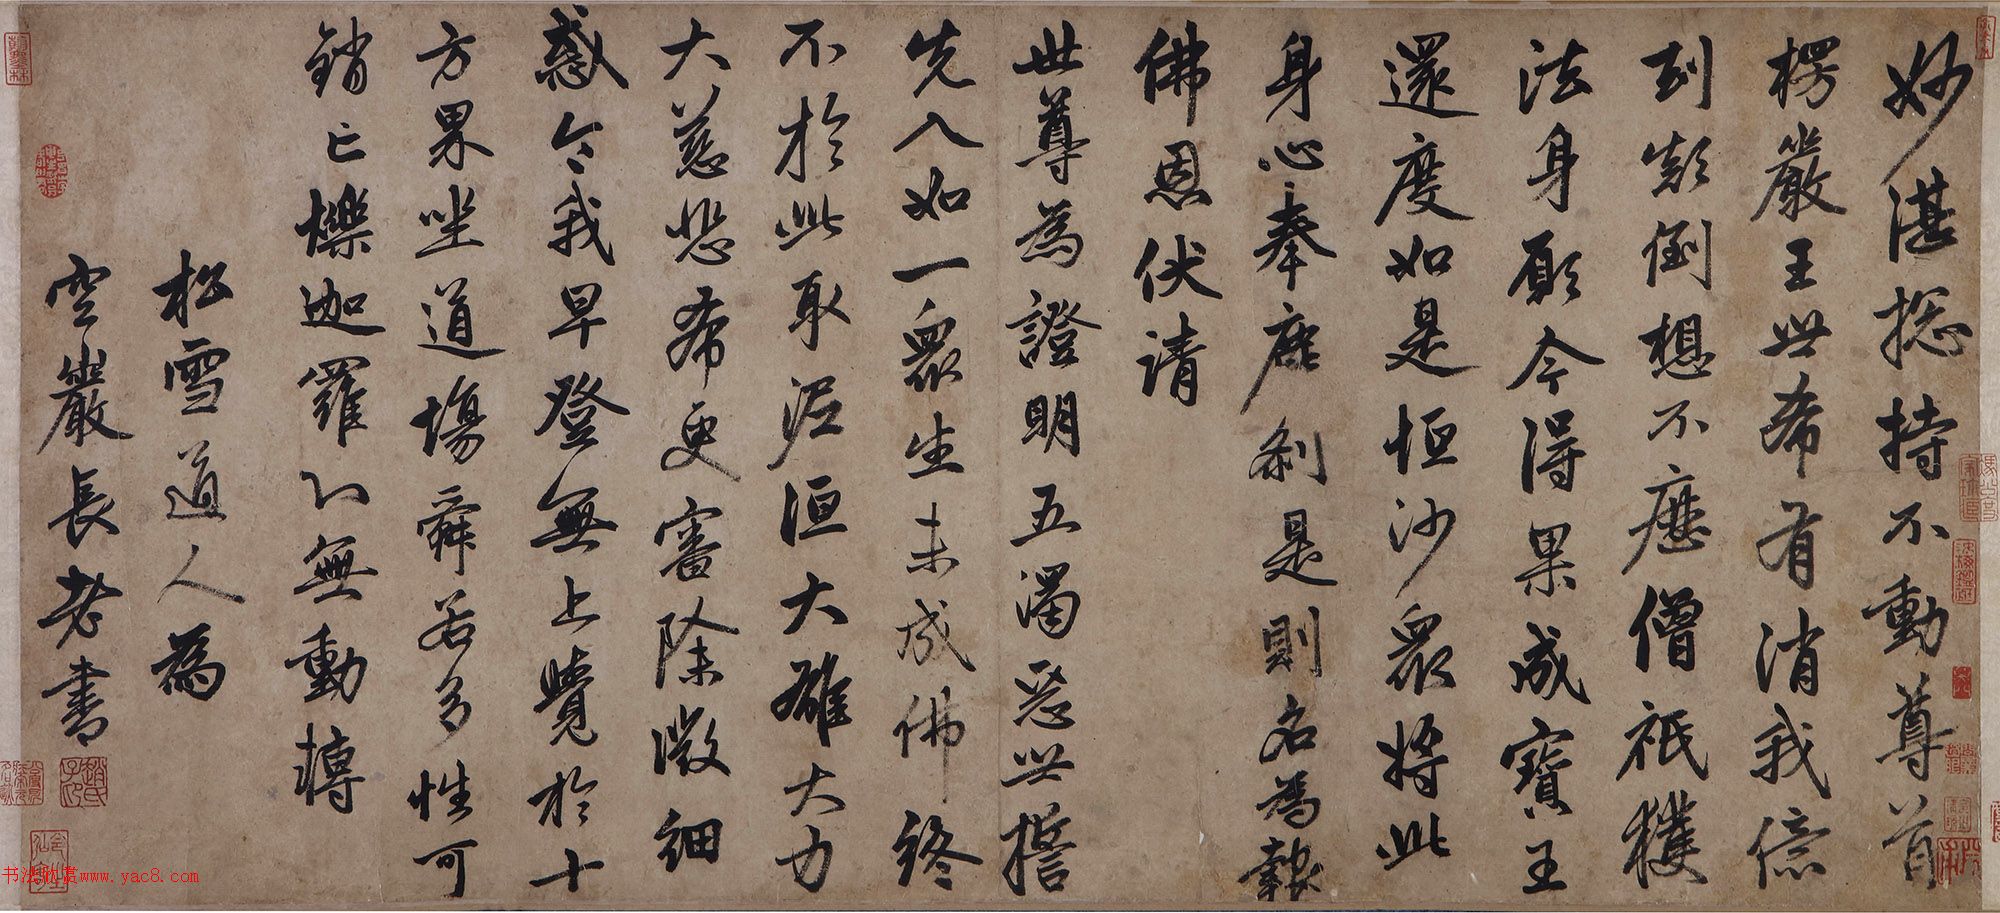 妙湛捴持不動尊首
楞嚴王世希有消我億
刦顛倒想不歷僧祇穫
法身願今得果成寶王
還度如是恒沙衆將此
身心奉塵刹是則名為報
佛恩伏請
世尊為證明五濁惡世誓
先入如一衆生未成佛終
不於此取泥洹大雄大力
大慈悲希更審除微細
惑令我早登無上覺於十
方界坐道場舜若多性可
銷亡爍迦羅心無動轉
松雪道人為
空巖長老書
趙氏子昂
书法欣赏www.yac8.com